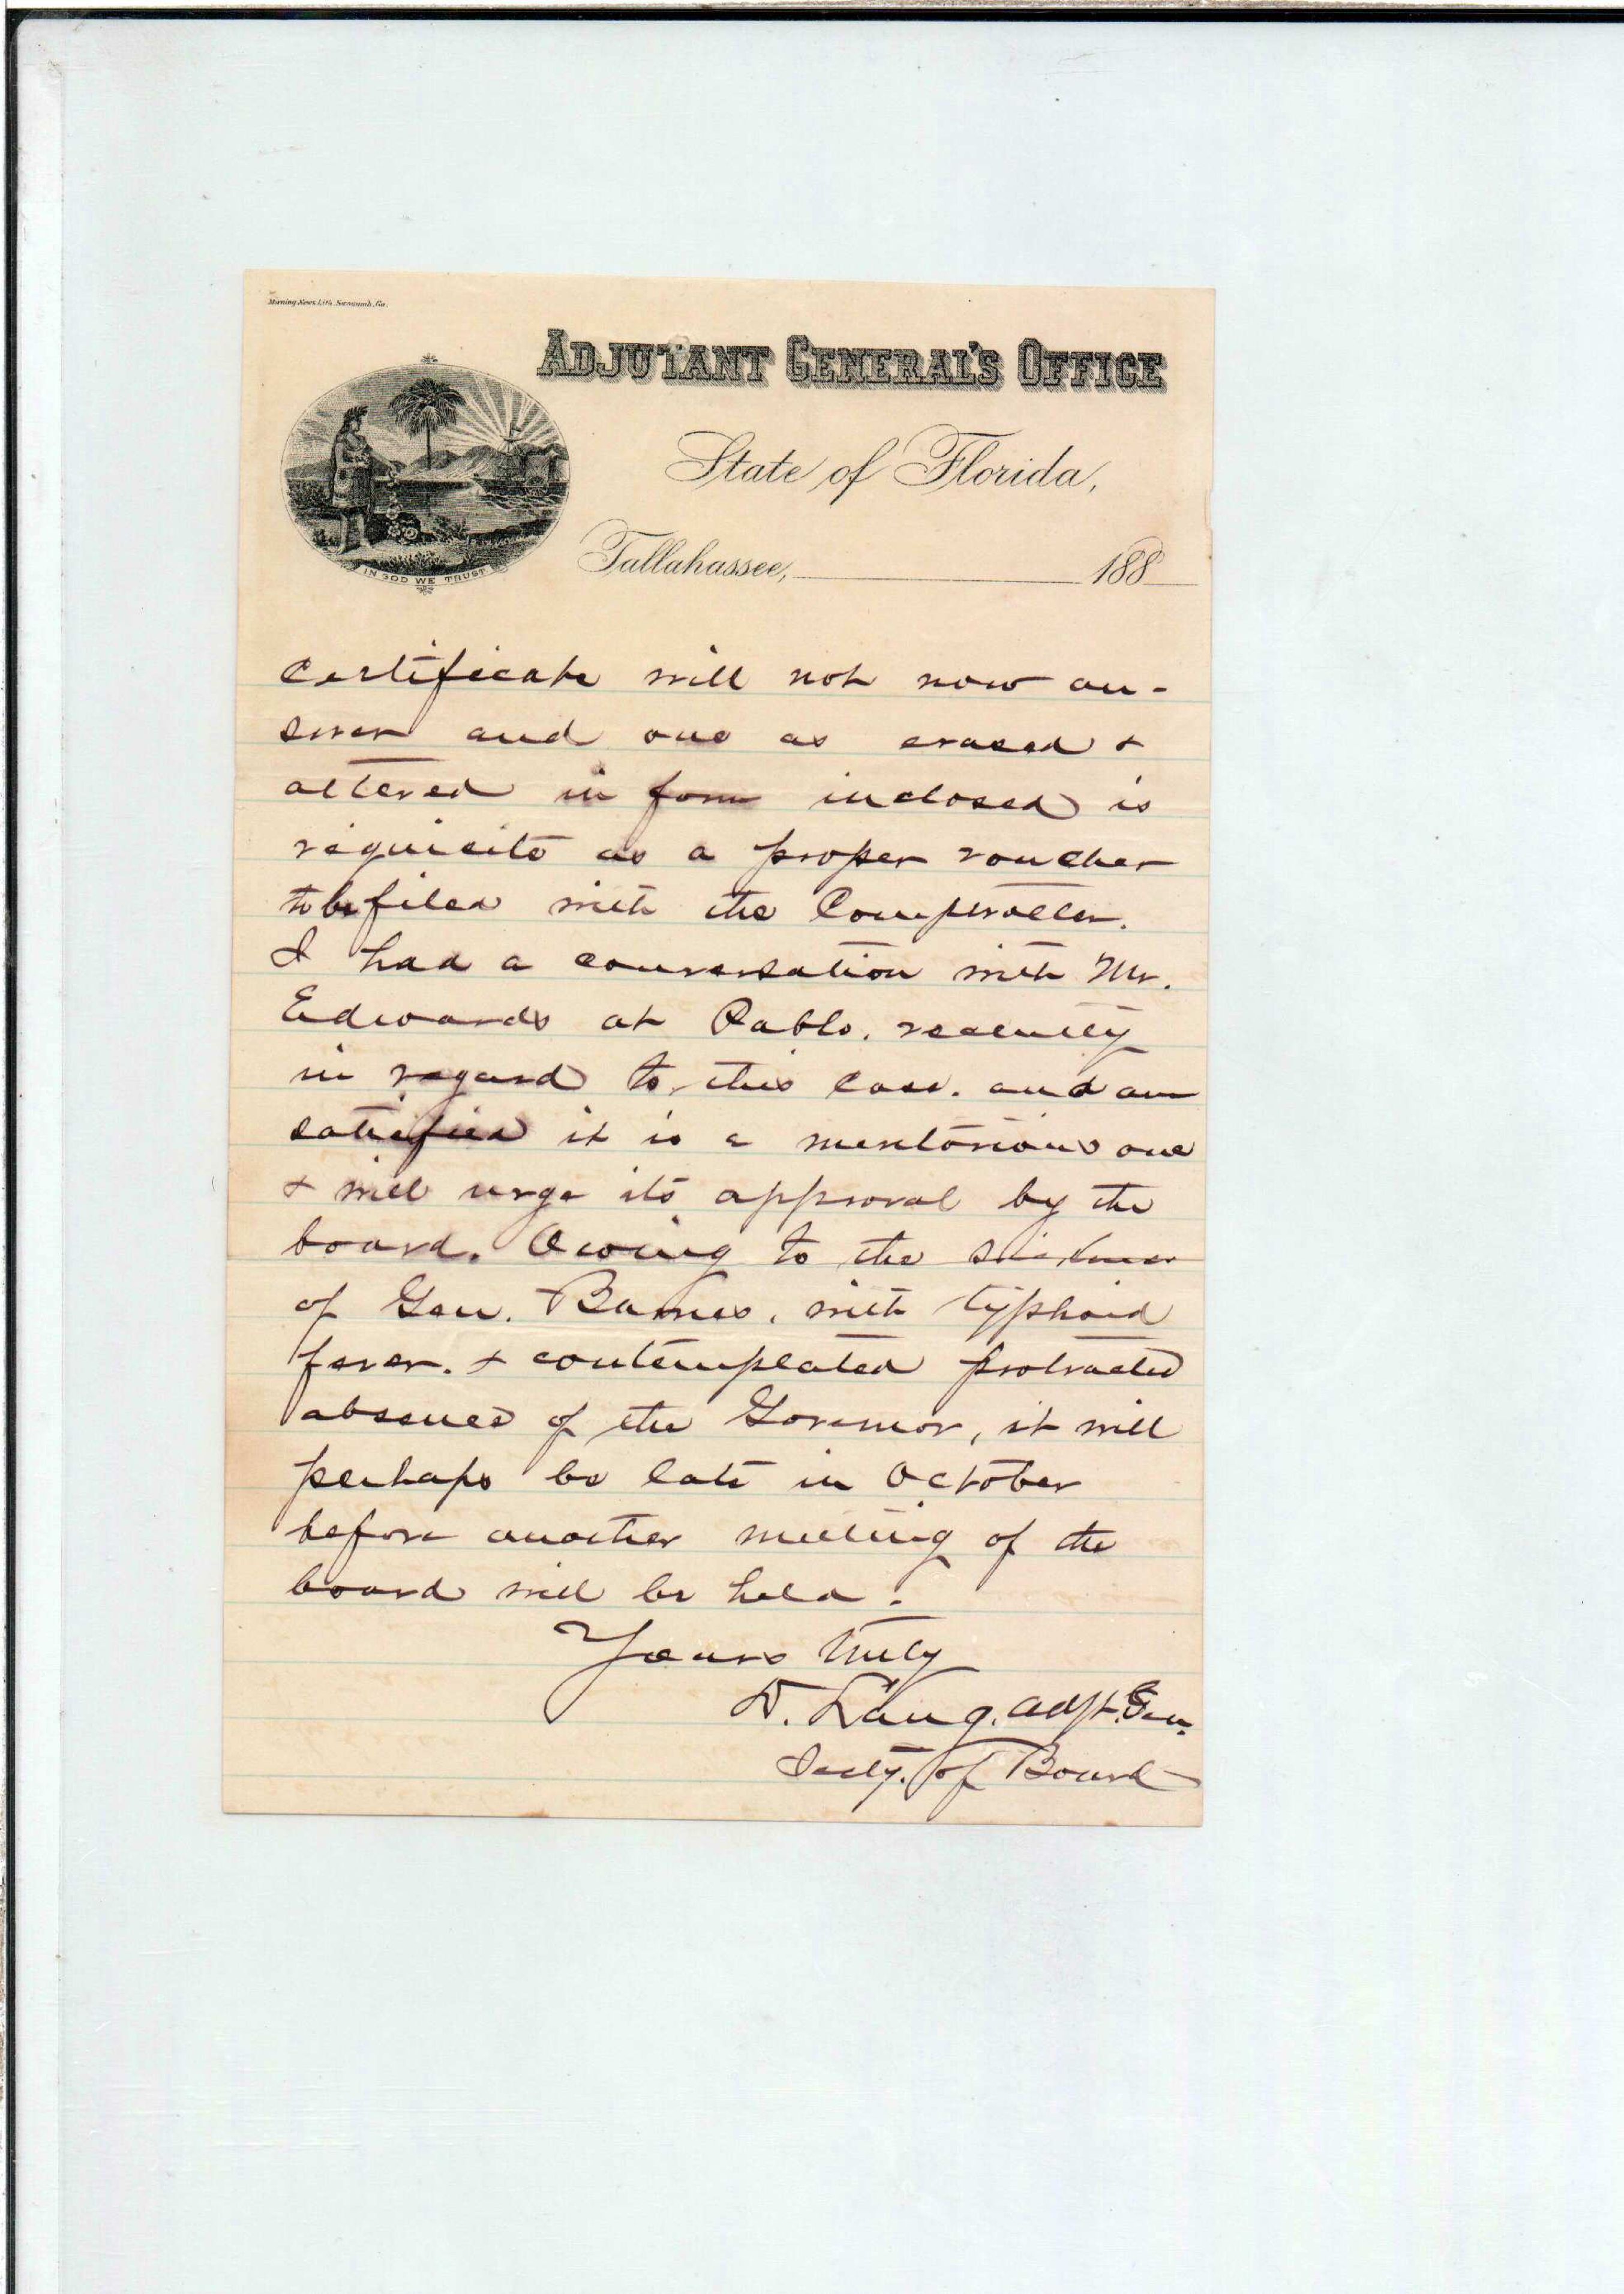 Morning News Lith. Savannah, Ga.
ADJUTANT GENERAL'S OFFICE
State of Florida,
Tallahassee, 188
IN GOD WE TRUST
Certificate will not now an-
swer and one as erased +
altered in form inclosed is
requisite as a proper voucher
to be filed with the Comptroller.
I had a conversation with Mr.
Edwards at Pablo, recently
in regard to this case. and am
satisfied it is a meritorious one
+ will urge its approval by the
board. Owing to the sickness
of Gen. Barnes, with typhoid
fever. + contemplated protracted
absence of the Governor, it will
perhaps be late in October
before another meeting of the
board will be held.
Yours truly
D. Lang. Adjt. Gen.
Secty. of Board